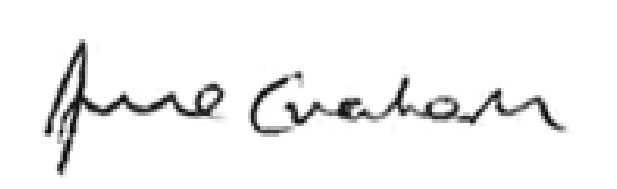 Anne Graham